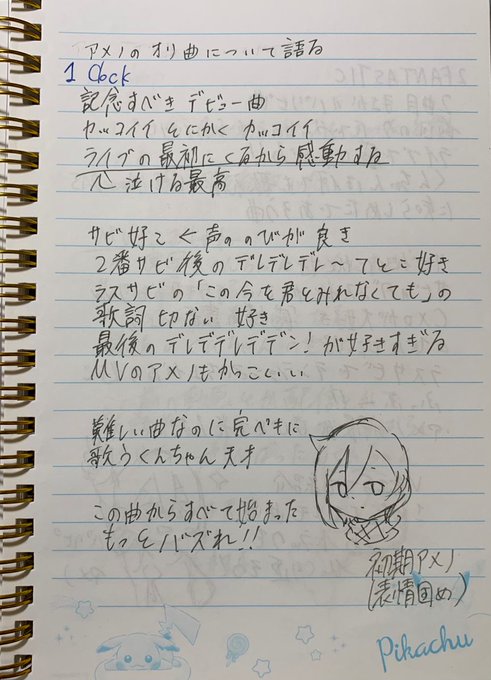 アメノのオリ曲について語る
1 Clock
記念すべき デビュー曲
カッコイイ とにかく カッコイイ
ライブの最初にくるから感動する
泣ける最高
サビ好き ← 声ののびが良き
2番サビ後の デレデレデレ〜てとこ好き
ラスサビの「この今を君とみれなくても」の
歌詞 切ない 好き
最後のデレデデレデデン！が好きすぎる
MVのアメノもかっこいい
難しい曲なのに完ぺきに
歌うくんちゃん 天才
この曲からすべて始まった
もっとバズれ!!
初期アメノ
(表情固め)
Pikachu